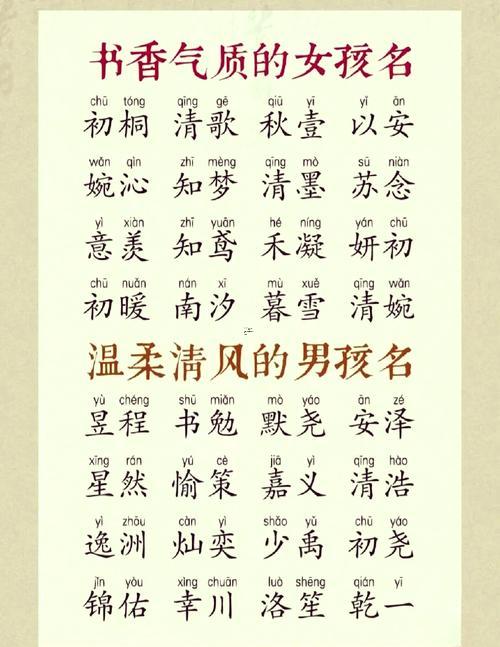 书香气质的女孩名
chū tóng qīng gē qiū yī yǐ ān
初桐 清歌 秋壹 以安
wǎn qìn zhī mèng qīng mò sū niàn
婉沁 知梦 清墨 苏念
yì xiàn zhī yuān hé níng yán chū
意羡 知鸢 禾凝 妍初
chū nuǎn nán xī mù xuě qīng wǎn
初暖 南汐 暮雪 清婉
温柔清风的男孩名
yù chéng shū miǎn mò yáo ān zé
昱程 书勉 默尧 安泽
xīng rán yú cè jiā yì qīng hào
星然 愉策 嘉义 清浩
yì zhōu càn yì shǎo yǔ chū yáo
逸洲 灿奕 少禹 初尧
jǐn yòu xìng chuān luò shēng qián yī
锦佑 幸川 洛笙 乾一